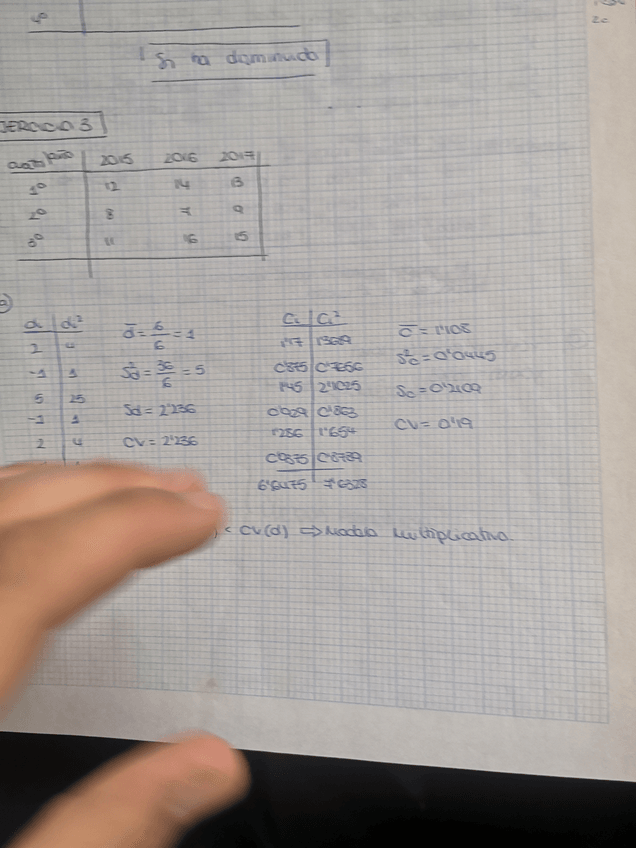 4º
Si ha disminuido
EJERCICIO 3
2015 2016 2017
1º 12 14 13
2º 8 7 9
3º 11 16 15
a)
di di²
2 4
-1 1
5 25
-1 1
2 4
d̄ = 6/6 = 1
S²d = 36/6 = 5
Sd = 2'236
CV = 2'236
Ci Ci²
1'17 1'3689
0'875 0'7656
1'45 2'1025
0'929 0'863
1'286 1'654
0'9375 0'8789
6'6475 7'6328
c̄ = 1'108
S²c = 0'0445
Sc = 0'2109
CV = 0'19
< CV(d) ⇒ Modelo Multiplicativo.